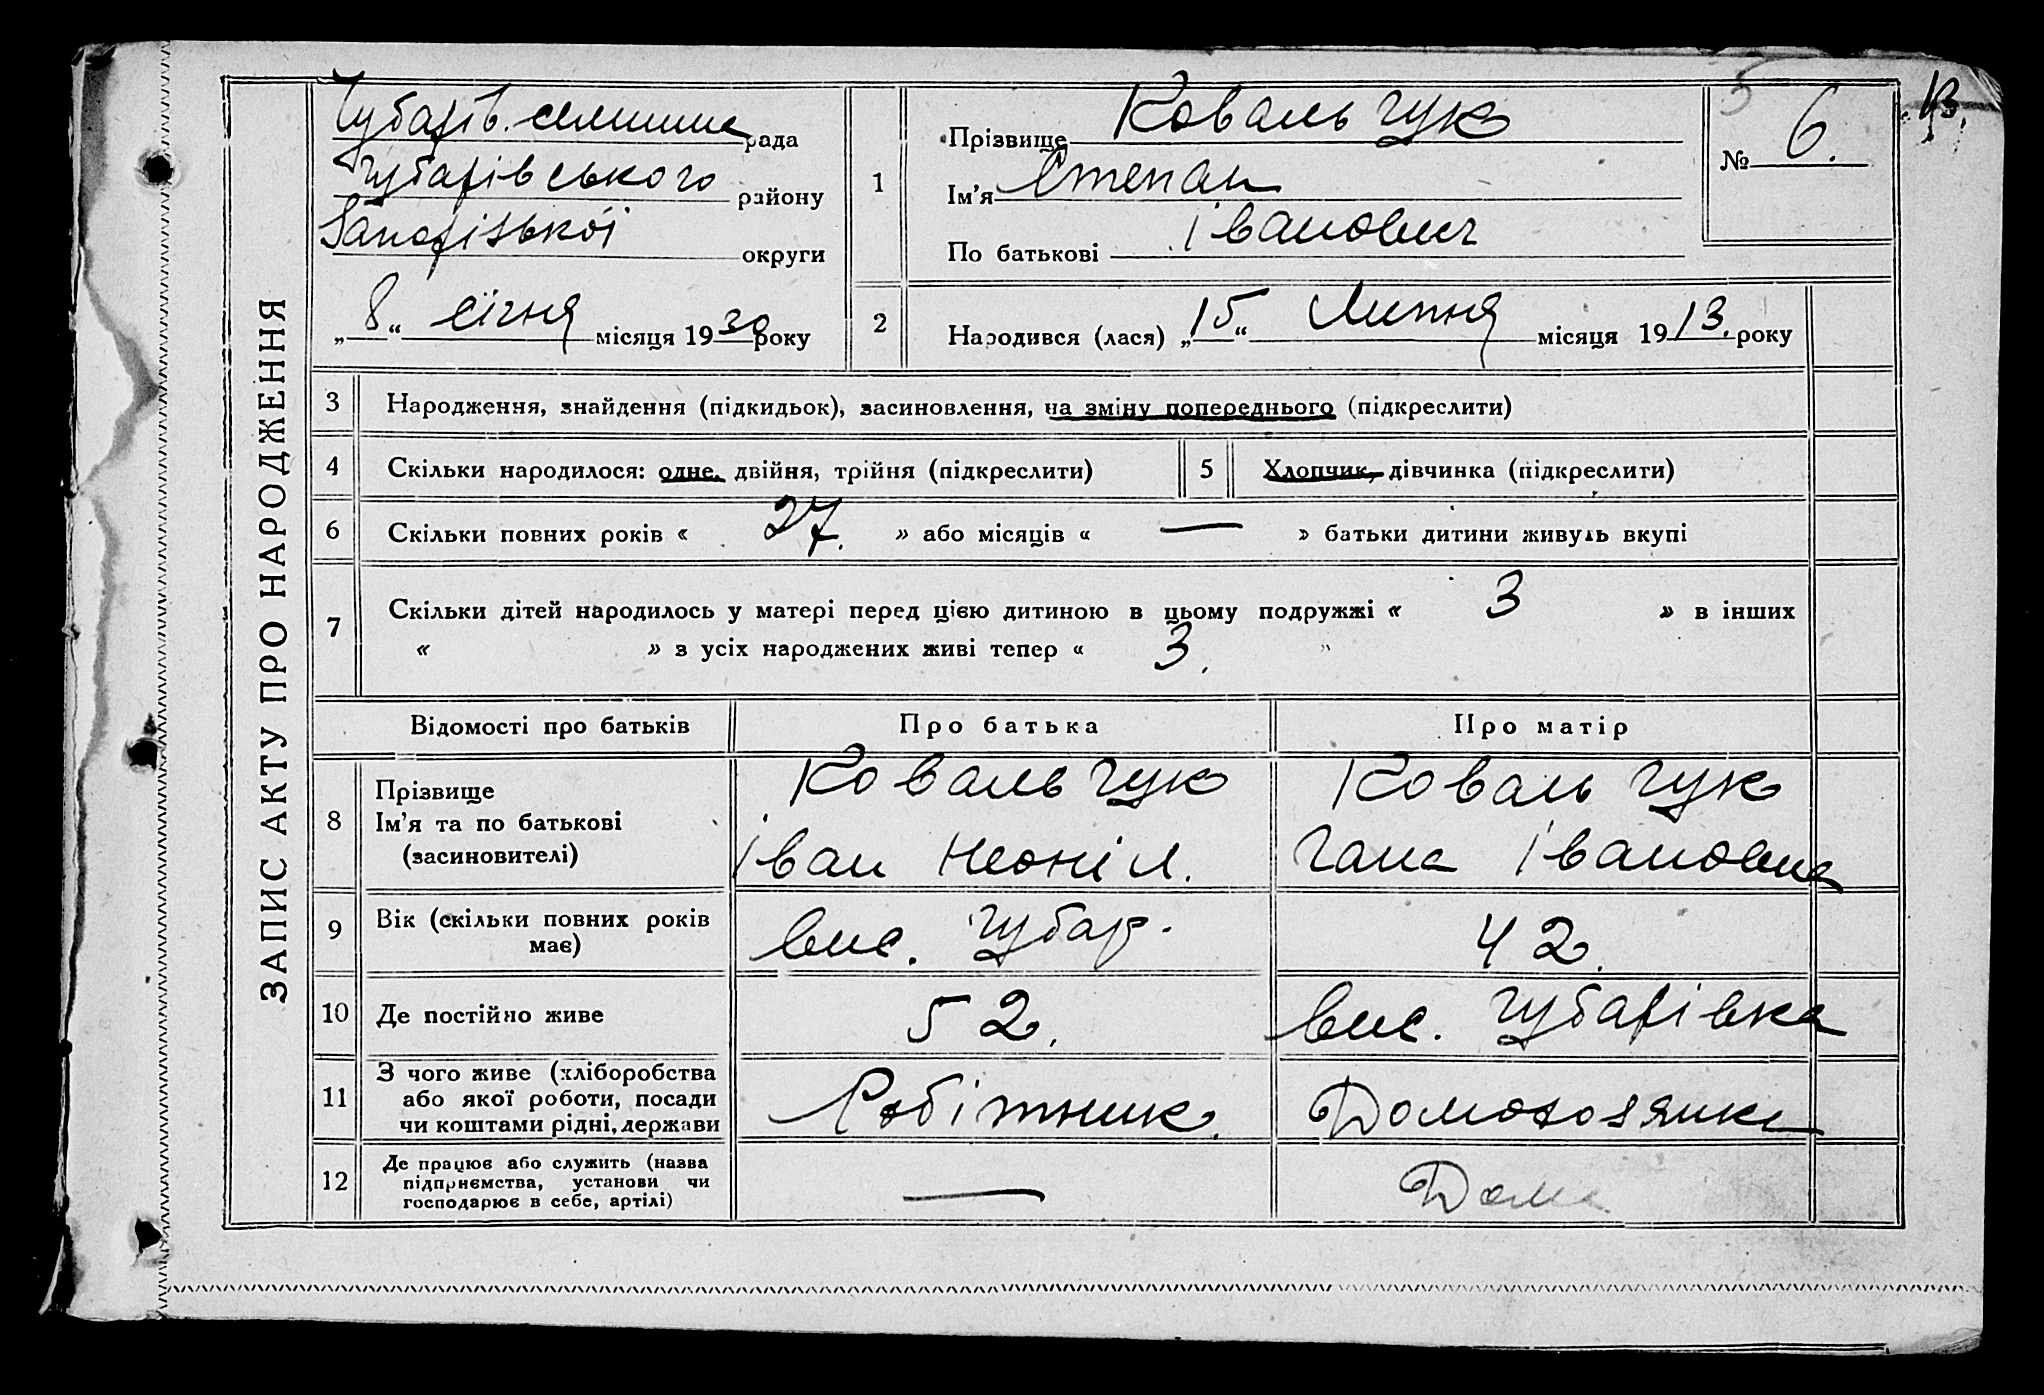 ЗАПИС АКТУ ПРО НАРОДЖЕННЯ
Чубарів. селищна рада
Чубарівського району
Запорізької округи
„8“ січня місяця 1930 року
1
Прізвище Ковальчук
Ім'я Степан
По батькові Іванович
№ 6.
5
13.
2
Народився (лася) „15“ Липня місяця 1913. року
3 Народження, знайдення (підкидьок), засиновлення, на зміну попереднього (підкреслити)
4 Скільки народилося: одне, двійня, трійня (підкреслити)
5 Хлопчик, дівчинка (підкреслити)
6 Скільки повних років « 27. » або місяців « — » батьки дитини живуть вкупі
7 Скільки дітей народилось у матері перед цією дитиною в цьому подружжі « 3 » в інших
« » з усіх народжених живі тепер « 3. »
Відомості про батьків Про батька Про матір
8 Прізвище
Ім'я та по батькові
(засиновителі)
Ковальчук
Іван Неоніл.
Ковальчук
Гана Івановна
9 Вік (скільки повних років
має)
вис. Чубар.
42.
10 Де постійно живе
52.
вис. Чубарівка
11 З чого живе (хліборобства
або якої роботи, посади
чи коштами рідні, держави
Робітник.
Домохозяйка
12 Де працює або служить (назва
підприємства, установи чи
господарює в себе, артілі)
—
Дома